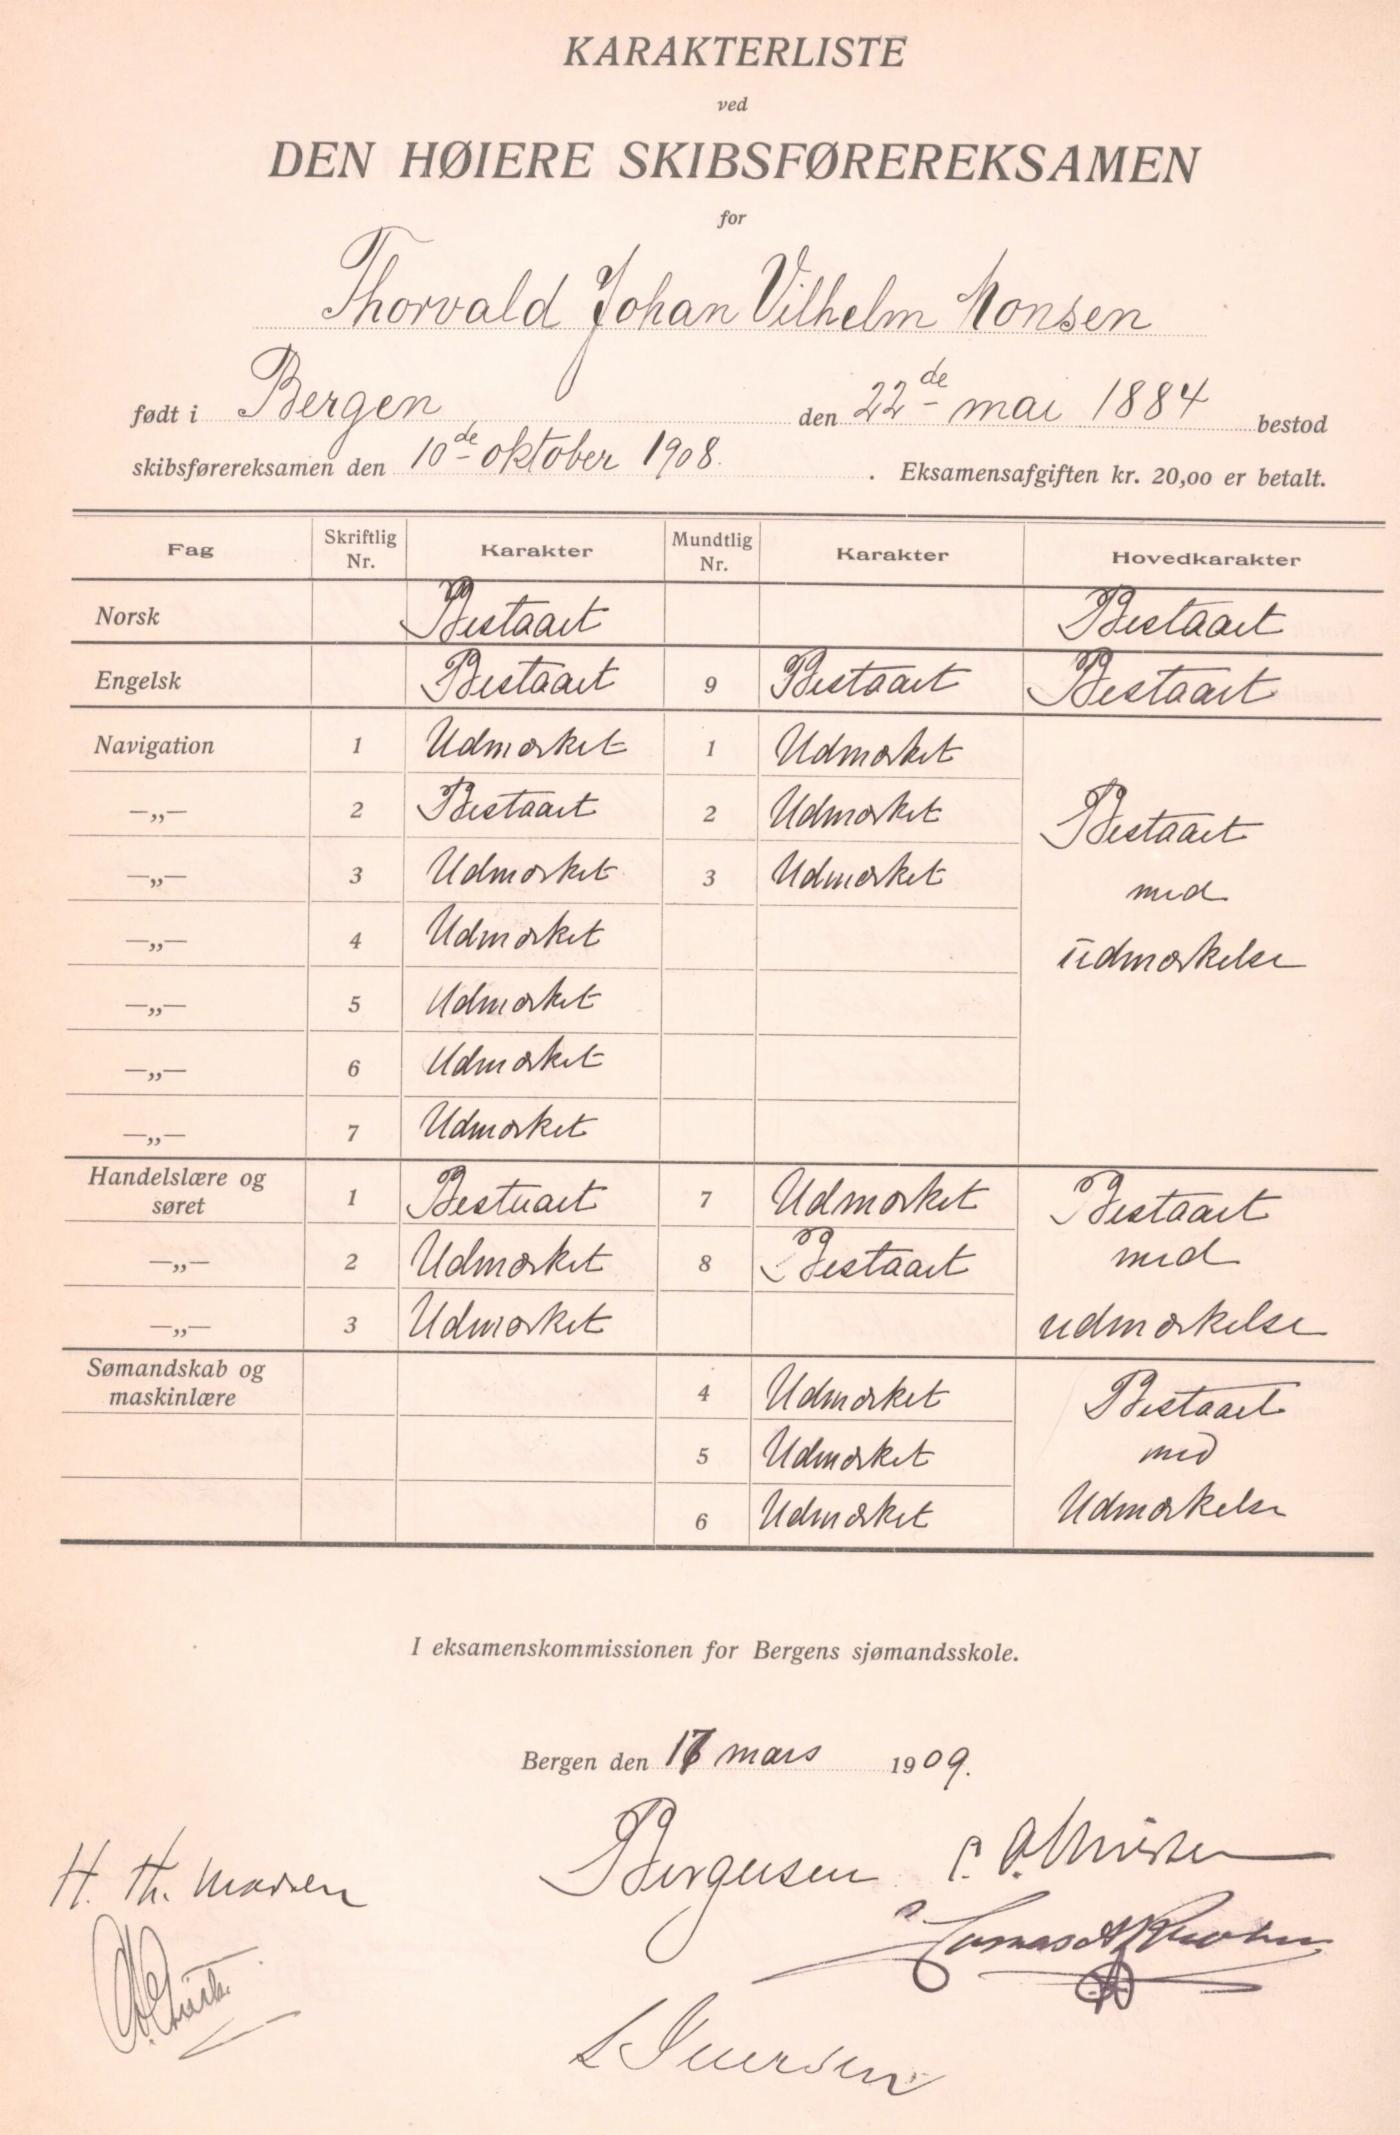 KARAKTERLISTE
ved
DEN HØIERE SKIBSFØREREKSAMEN
for
Thorvald Johan Vilhelm Monsen
født i Bergen den 22de mai 1884 bestod
skibsførereksamen den 10de oktober 1908. Eksamensafgiften kr. 20,00 er betalt.
Fag Skriftlig Nr. Karakter Mundtlig Nr. Karakter Hovedkarakter
Norsk Bestaaet Bestaaet
Engelsk Bestaaet 9 Bestaaet Bestaaet
Navigation 1 Udmærket 1 Udmærket
—„— 2 Bestaaet 2 Udmærket Bestaaet
—„— 3 Udmærket 3 Udmærket med
—„— 4 Udmærket udmærkelse
—„— 5 Udmærket
—„— 6 Udmærket
—„— 7 Udmærket
Handelslære og søret 1 Bestaaet 7 Udmærket Bestaaet
—„— 2 Udmærket 8 Bestaaet med
—„— 3 Udmærket udmærkelse
Sømandskab og maskinlære 4 Udmærket Bestaaet
5 Udmærket med
6 Udmærket Udmærkelse
I eksamenskommissionen for Bergens sjømandsskole.
Bergen den mars 1909.
H. Th.
Bergersen
L Iversen